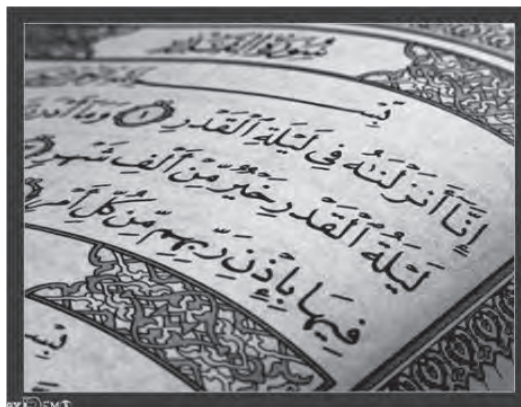 سُورَةُ الْقَدْرِ
بِسْـــــمِ
إِنَّآ أَنزَلْنَٰهُ فِى لَيْلَةِ ٱلْقَدْرِ ۝١ وَمَآ أَدْرَىٰكَ
لَيْلَةُ ٱلْقَدْرِ خَيْرٌ مِّنْ أَلْفِ شَهْرٍ
فِيهَا بِإِذْنِ رَبِّهِم مِّن كُلِّ أَمْرٍ